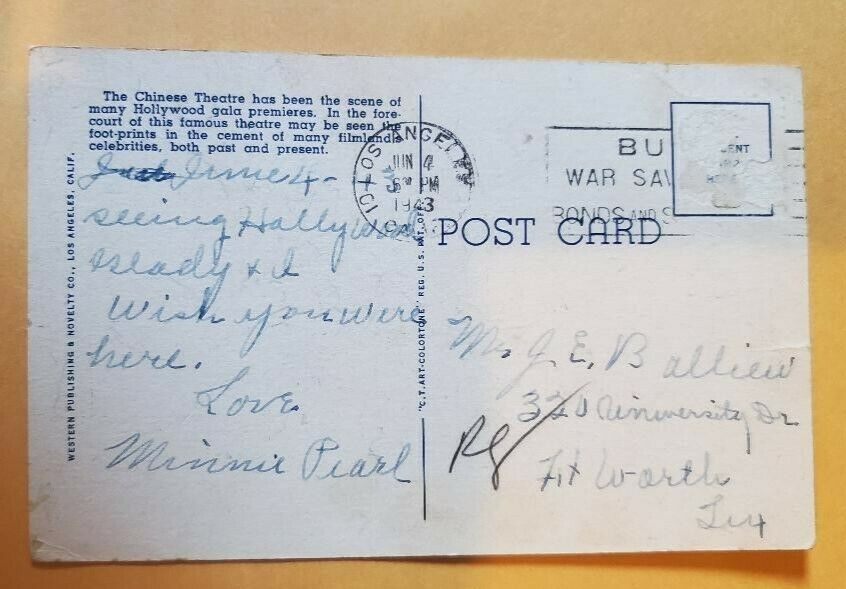 The Chinese Theatre has been the scene of
many Hollywood gala premieres. In the fore-
court of this famous theatre may be seen the
foot-prints in the cement of many filmland
celebrities, both past and present.
June 4 - 43
seeing Hollywood
Glady & I
Wish you were
here.
Love
Minnie Pearl
WESTERN PUBLISHING & NOVELTY CO., LOS ANGELES, CALIF.
"C.T. ART-COLORTONE" REG. U.S. PAT. OFF.
LOS ANGELES
JUN 4
PM
1943
CALIF.
BU
WAR SAV
BONDS AND S
POST CARD
Mr J. E. Balliew
320 University Dr
Ft Worth
Tex